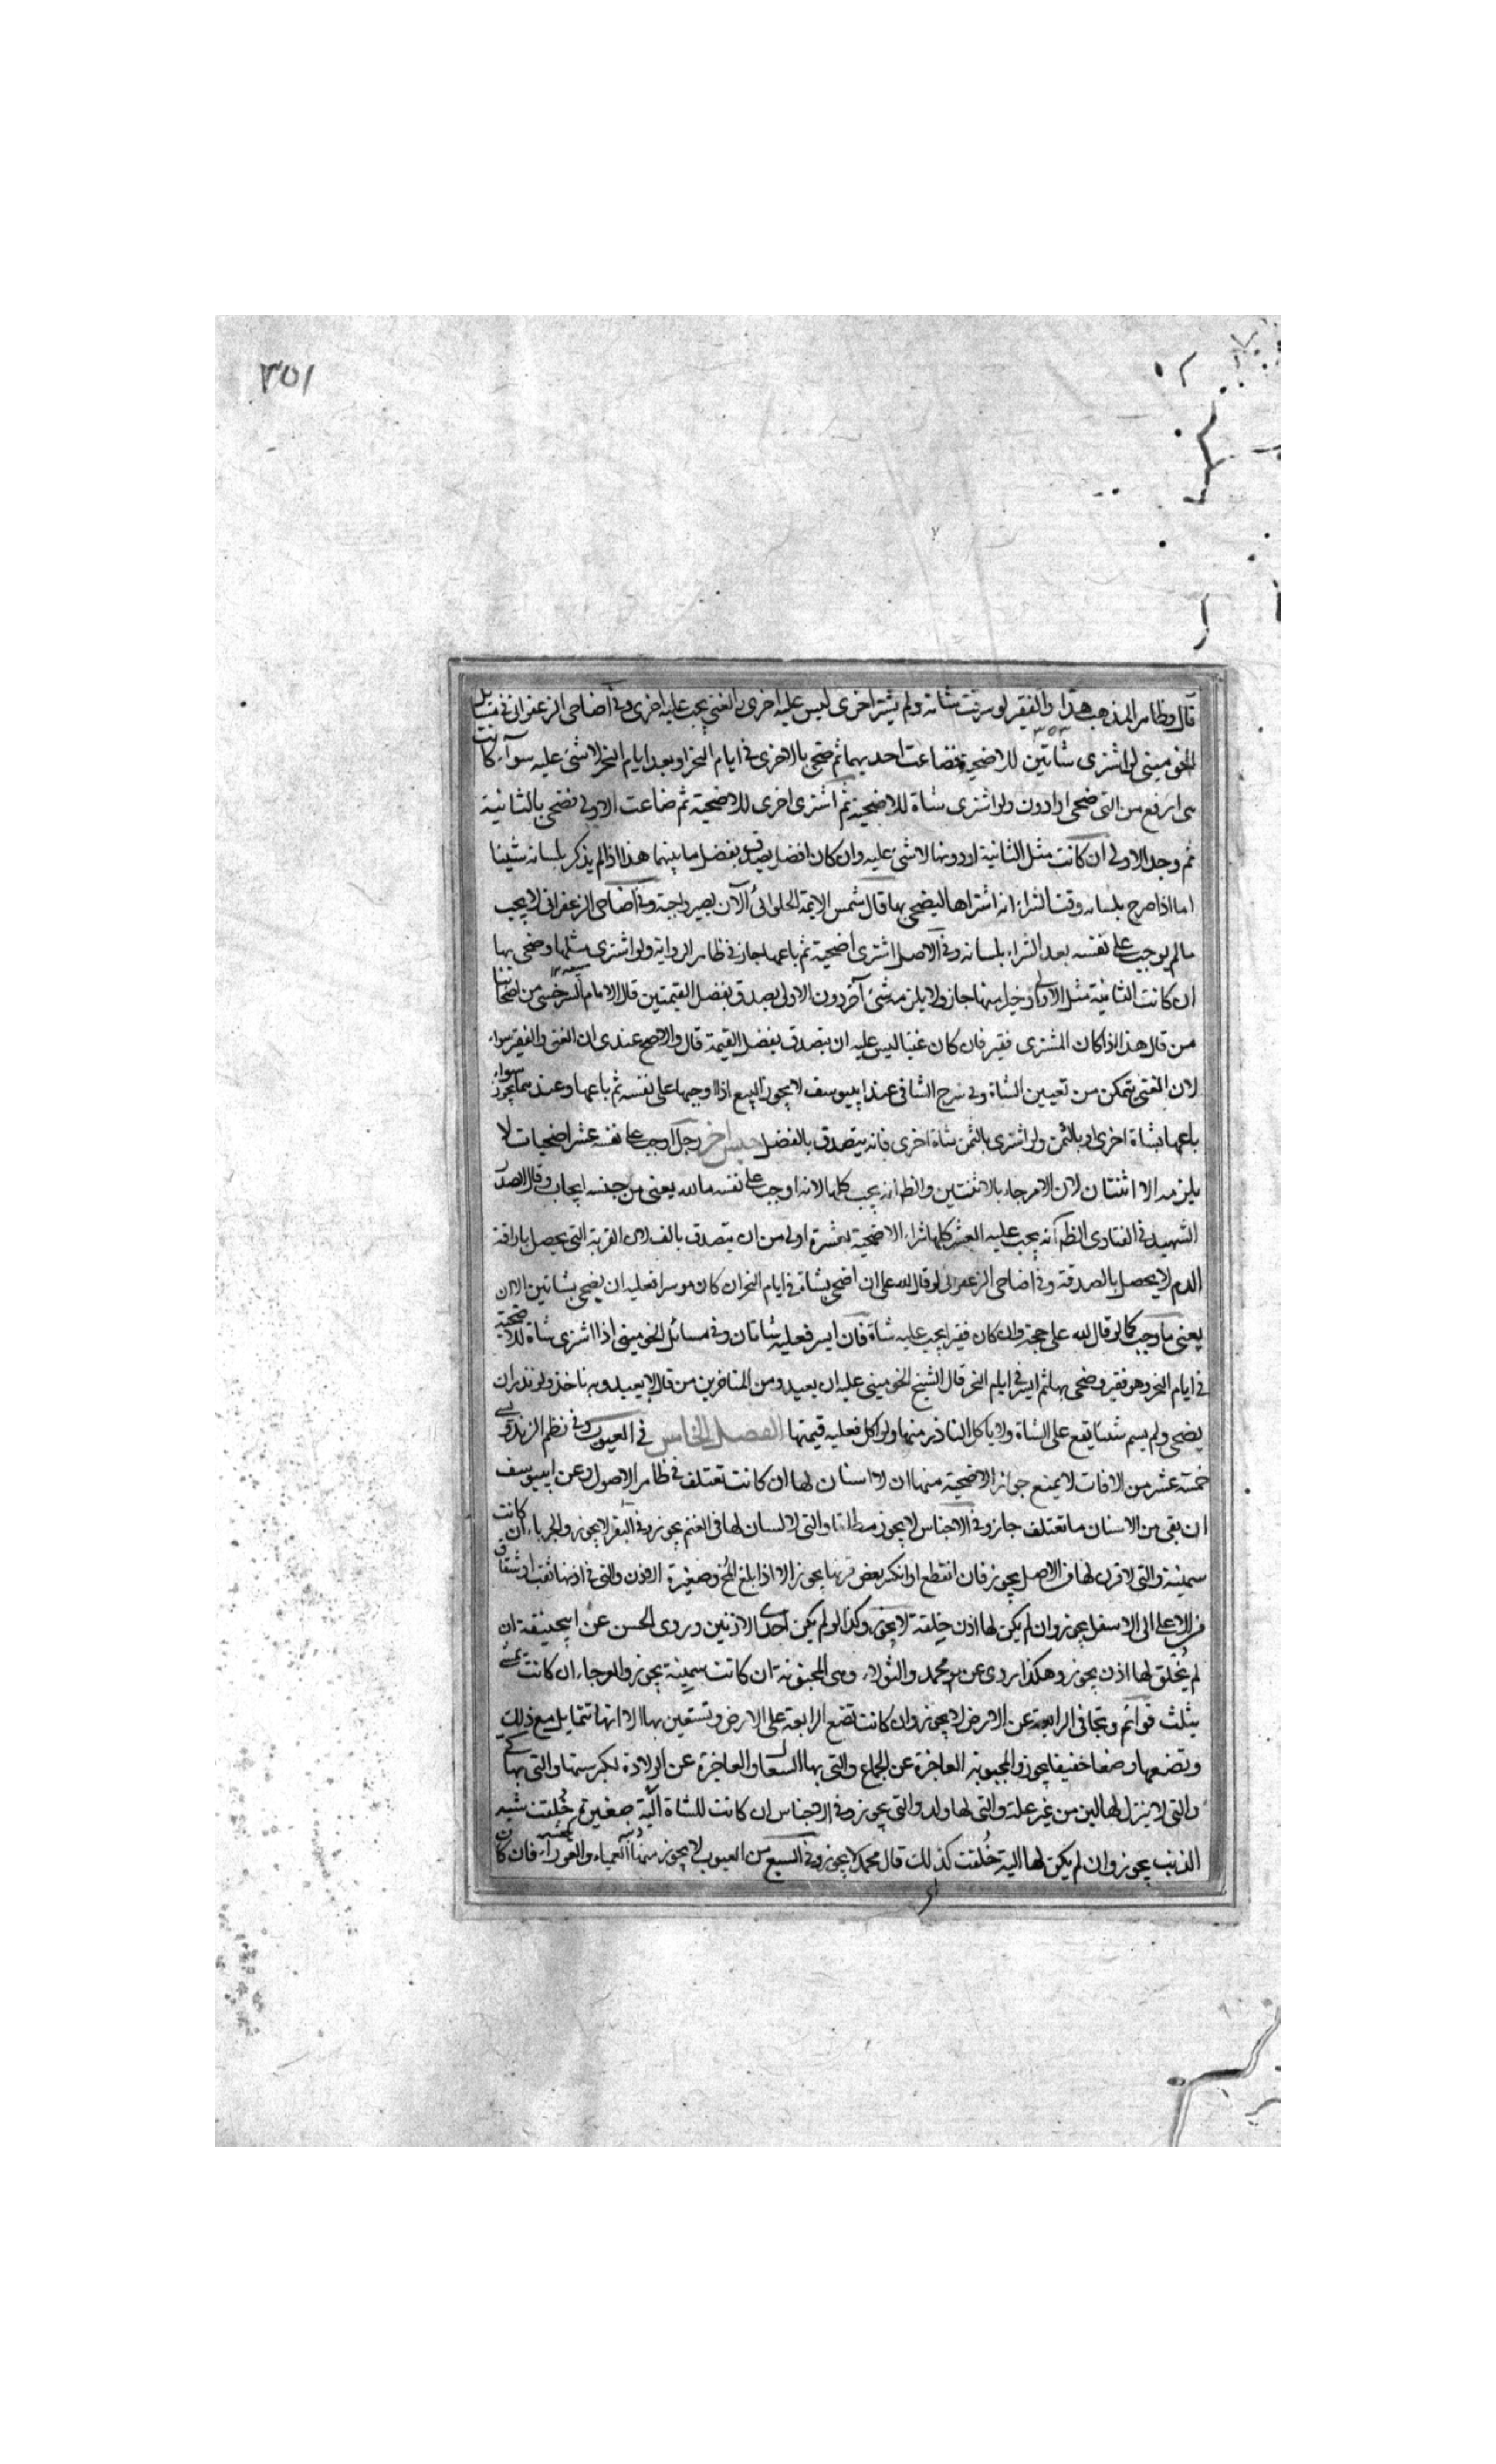 ٣٥١
قال وظاهر المذهب هذا والفقير لو سرقت شاته ولم يشتر اخرى ليس عليه اخرى والغني يجب عليه اخرى وفي اضاحي الزعفراني في مسائل
الخوميني لو اشترى شاتين للاضحية فضاعت احديهما ثم ضحى بالاخرى في ايام النحر او بعد ايام النحر لا شئ عليه سوآء كانت
هى ارفع من التى ضحى او ادون ولو اشترى شاة للاضحية ثم اشترى اخرى للاضحية ثم ضاعت الاولى فضحى بالثانية
ثم وجد الاولى ان كانت مثل الثانية او دونها لا شئ عليه وان كان افضل يصدق بفضل ما بينهما هذا اذا لم يذكر بلسانه شيئا
اما اذا صرح بلسانه وقت الشراء انه اشتراها ليضحى بها قال شمس الايمة الحلوائى الآن يصير واجبة وفي اضاحى الزعفرانى لا يجب
مالم يوجب على نفسه بعد الشراء بلسانه وفي الاصل اشترى اضحية ثم باعها جاز في ظاهر الرواية ولو اشترى مثلها وضحى بها
ان كانت الثانية مثل الاولى او خيرا منها جاز ولا يلزمه شئ آخر دون الاولى يصدق بفضل القيمتين قال الامام السرخسى من اصحابنا
من قال هذا اذا كان المشترى فقير فان كان غنيا ليس عليه ان يتصدق بفضل القيمة قال والاصح عندى ان الغنى والفقير سواء
لان الغنى يتمكن من تعيين الشاة وفي شرح الشافى عند ابييوسف لا يجوز البيع اذا اوجبها على نفسه ثم باعها وعندهما يجوز سواء
باعها بشاة اخرى او بالثمن ولو اشترى بالثمن شاة اخرى فانه يتصدق بالفضل جنس آخر رجل اوجب على نفسه عشر اضحيات لا
يلزمه الا اثنتان لان الامر جاء بالاثنتين والظ انه يجب كلها لانه اوجب على نفسه ما لله يعنى من جنسه ايجاب وقال الصدر
الشهيد في الفتاوى الظ انه يجب عليه العشر كلها شراء الاضحية بعشرة اولى من ان يتصدق بالف لان القربة التى يحصل باراقة
الدم لا يحصل بالصدقة وفي اضاحى الزعفرانى لو قال لله على ان اضحى بشاة في ايام النحر ان كان موسرا فعليه ان يضحى بشاتين الا ان
يعنى ما وجب كما لو قال لله على حجة وان كان فقيرا يجب عليه شاة فان ايسر فعليه شاتان وفي مسائل الخوميني اذا اشترى شاة للاضحية
في ايام النحر وهو فقير وضحى بها ثم ايسر في ايام النحر قال الشيخ الخوميني عليه ان يعيد ومن المتاخرين من قال لا يعيد وبه ناخذ ولو نذر ان
يضحى ولم يسم شيئا يقع على الشاة ولا ياكل الناذر منها ولو اكل فعليه قيمتها الفصل الخامس في العيوب وفي نظم الزندويسى
خمسة عشر من الافات لا يمنع جواز الاضحية منها ان لا اسنان لها ان كانت تعتلف في ظاهر الاصول وعن ابييوسف
ان بقى من الاسنان ما تعتلف جاز وفي الاجناس لا يجوز مطلقا والتى لا لسان لها في الغنم يجوز وفي البقر لا يجوز والجرباء ان كانت
سمينة والتى لا قرن لها في الاصل يجوز فان انقطع او انكسر بعض قرنها يجوز الا اذا بلغ المخ وصغيرة الاذن والتى في اذنها ثقب او شقاق
من الاعلى الى الاسفل يجوز وان لم يكن لها اذن خلقة لا يجوز وكذا لو لم يكن احدى الاذنين وروى الحسن عن ابيحنيفة ان
لم يخلق لها اذن يجوز وهكذا يروى عن محمد والثولاء وهى المجنونة ان كانت سمينة يجوز والعرجاء ان كانت تمشى
بثلث قوائم وتجافى الرابعة عن الارض لا يجوز وان كانت تضع الرابعة على الارض وتستعين بها الا انها تتمايل مع ذلك
وتضعها وضعا خفيفا يجوز والمجبوبة العاجزة عن الجماع والتى بها السعال والعاجزة عن الولادة لكبر سنها والتى بها كى
والتى لا ينزل لها لبن من غير علة والتى لها ولد والتى يجوز وفي الاجناس ان كانت للشاة الية صغيرة خلقت شبه
الذنب يجوز وان لم يكن لها الية خلقت كذلك قال محمد لا يجوز وفي السبع من العيوب لا يجوز منها العمياء والعوراء فان كان